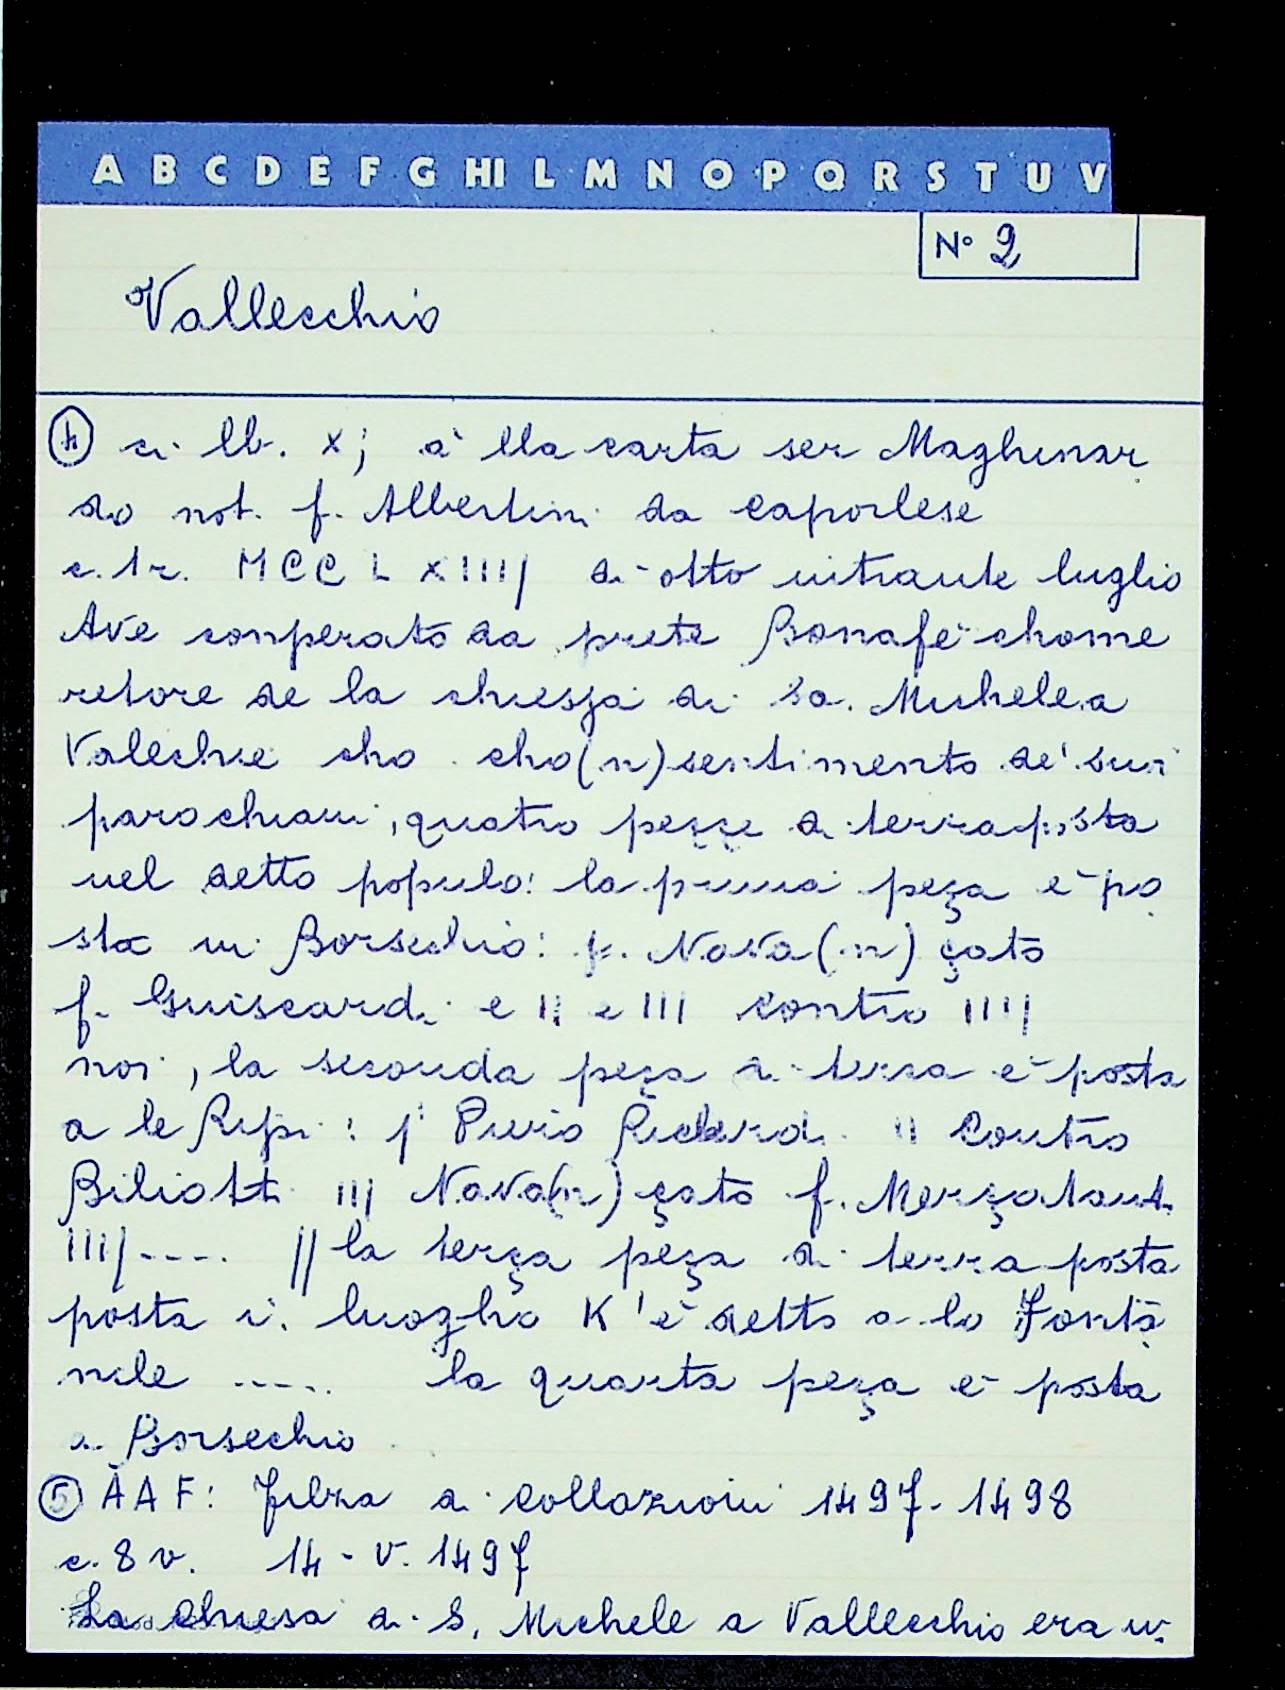 A B C D E F G HI L M N O P Q R S T U V
N° 2
Vallecchio
④ di lb. xj à lla carta ser Maghinar
do not. f. Albertini da Caporlese
c. 1r. MCCLXIIII di otto intrante luglio
Ave conperato da prete Bonafé chome
retore de la chiesza di Sa. Michele a
Valechie cho cho(n)sentimento de' sui
parochiani, quatro peççe di terra posta
nel detto populo: la prima peça è po
sta in Borsechio: j. Nova(n)çato
f. Guiscardi e II e III Contro IIII
noi, la seconda peça di terra è posta
a le Ripi: j Piero Richardi II Contro
Biliotti III Nova(n)çato f. Merçatanti
IIII---- // la terça peça di terra posta
posta i. luogho K'è detto a lo Fonta
nile ----. la quarta peça è posta
a Borsechio
⑤ AAF: Filza di Collazioni 1497-1498
c. 8 v. 14-V-1497
La chiesa di S. Michele a Vallecchio era in